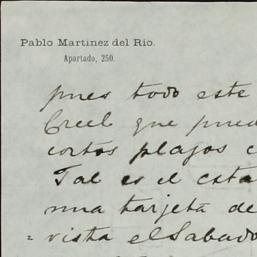 Pablo Martinez del Rio.
Apartado, 250.
pues todo este
Creel que pued
cortos plazos
Tal es el esta
una tarjeta de
vista el Sabado